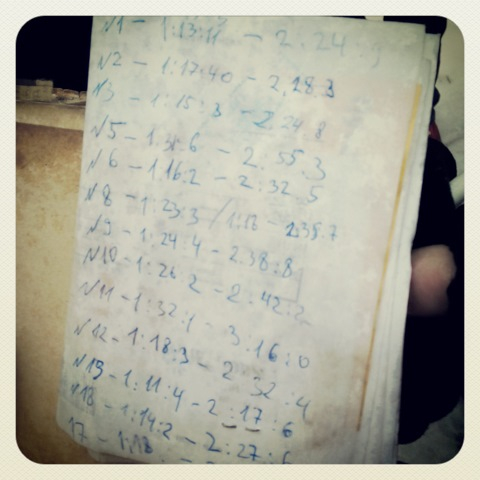 N1 - 1:13:11 - 2:24:9
N2 - 1:17:40 - 2,28.3
N3 - 1:15:3 - 2.24 8
N5 - 6 - 2.55.3
N6 - 1.16.2 - 2:32 5
N8 - 1:23:3 / 1:18 - 2.39.7
N9 - 1:24:4 - 2.38:8
N10 - 1:26:2 - 2:42:2
N11 - 1:32:1 - 3:16:0
N12 - 1:18:3 - 2 32:4
N13 - 1:11:4 - 2:17:6
N18 - 1:14:2 - 2:27:6
17 - 1:18